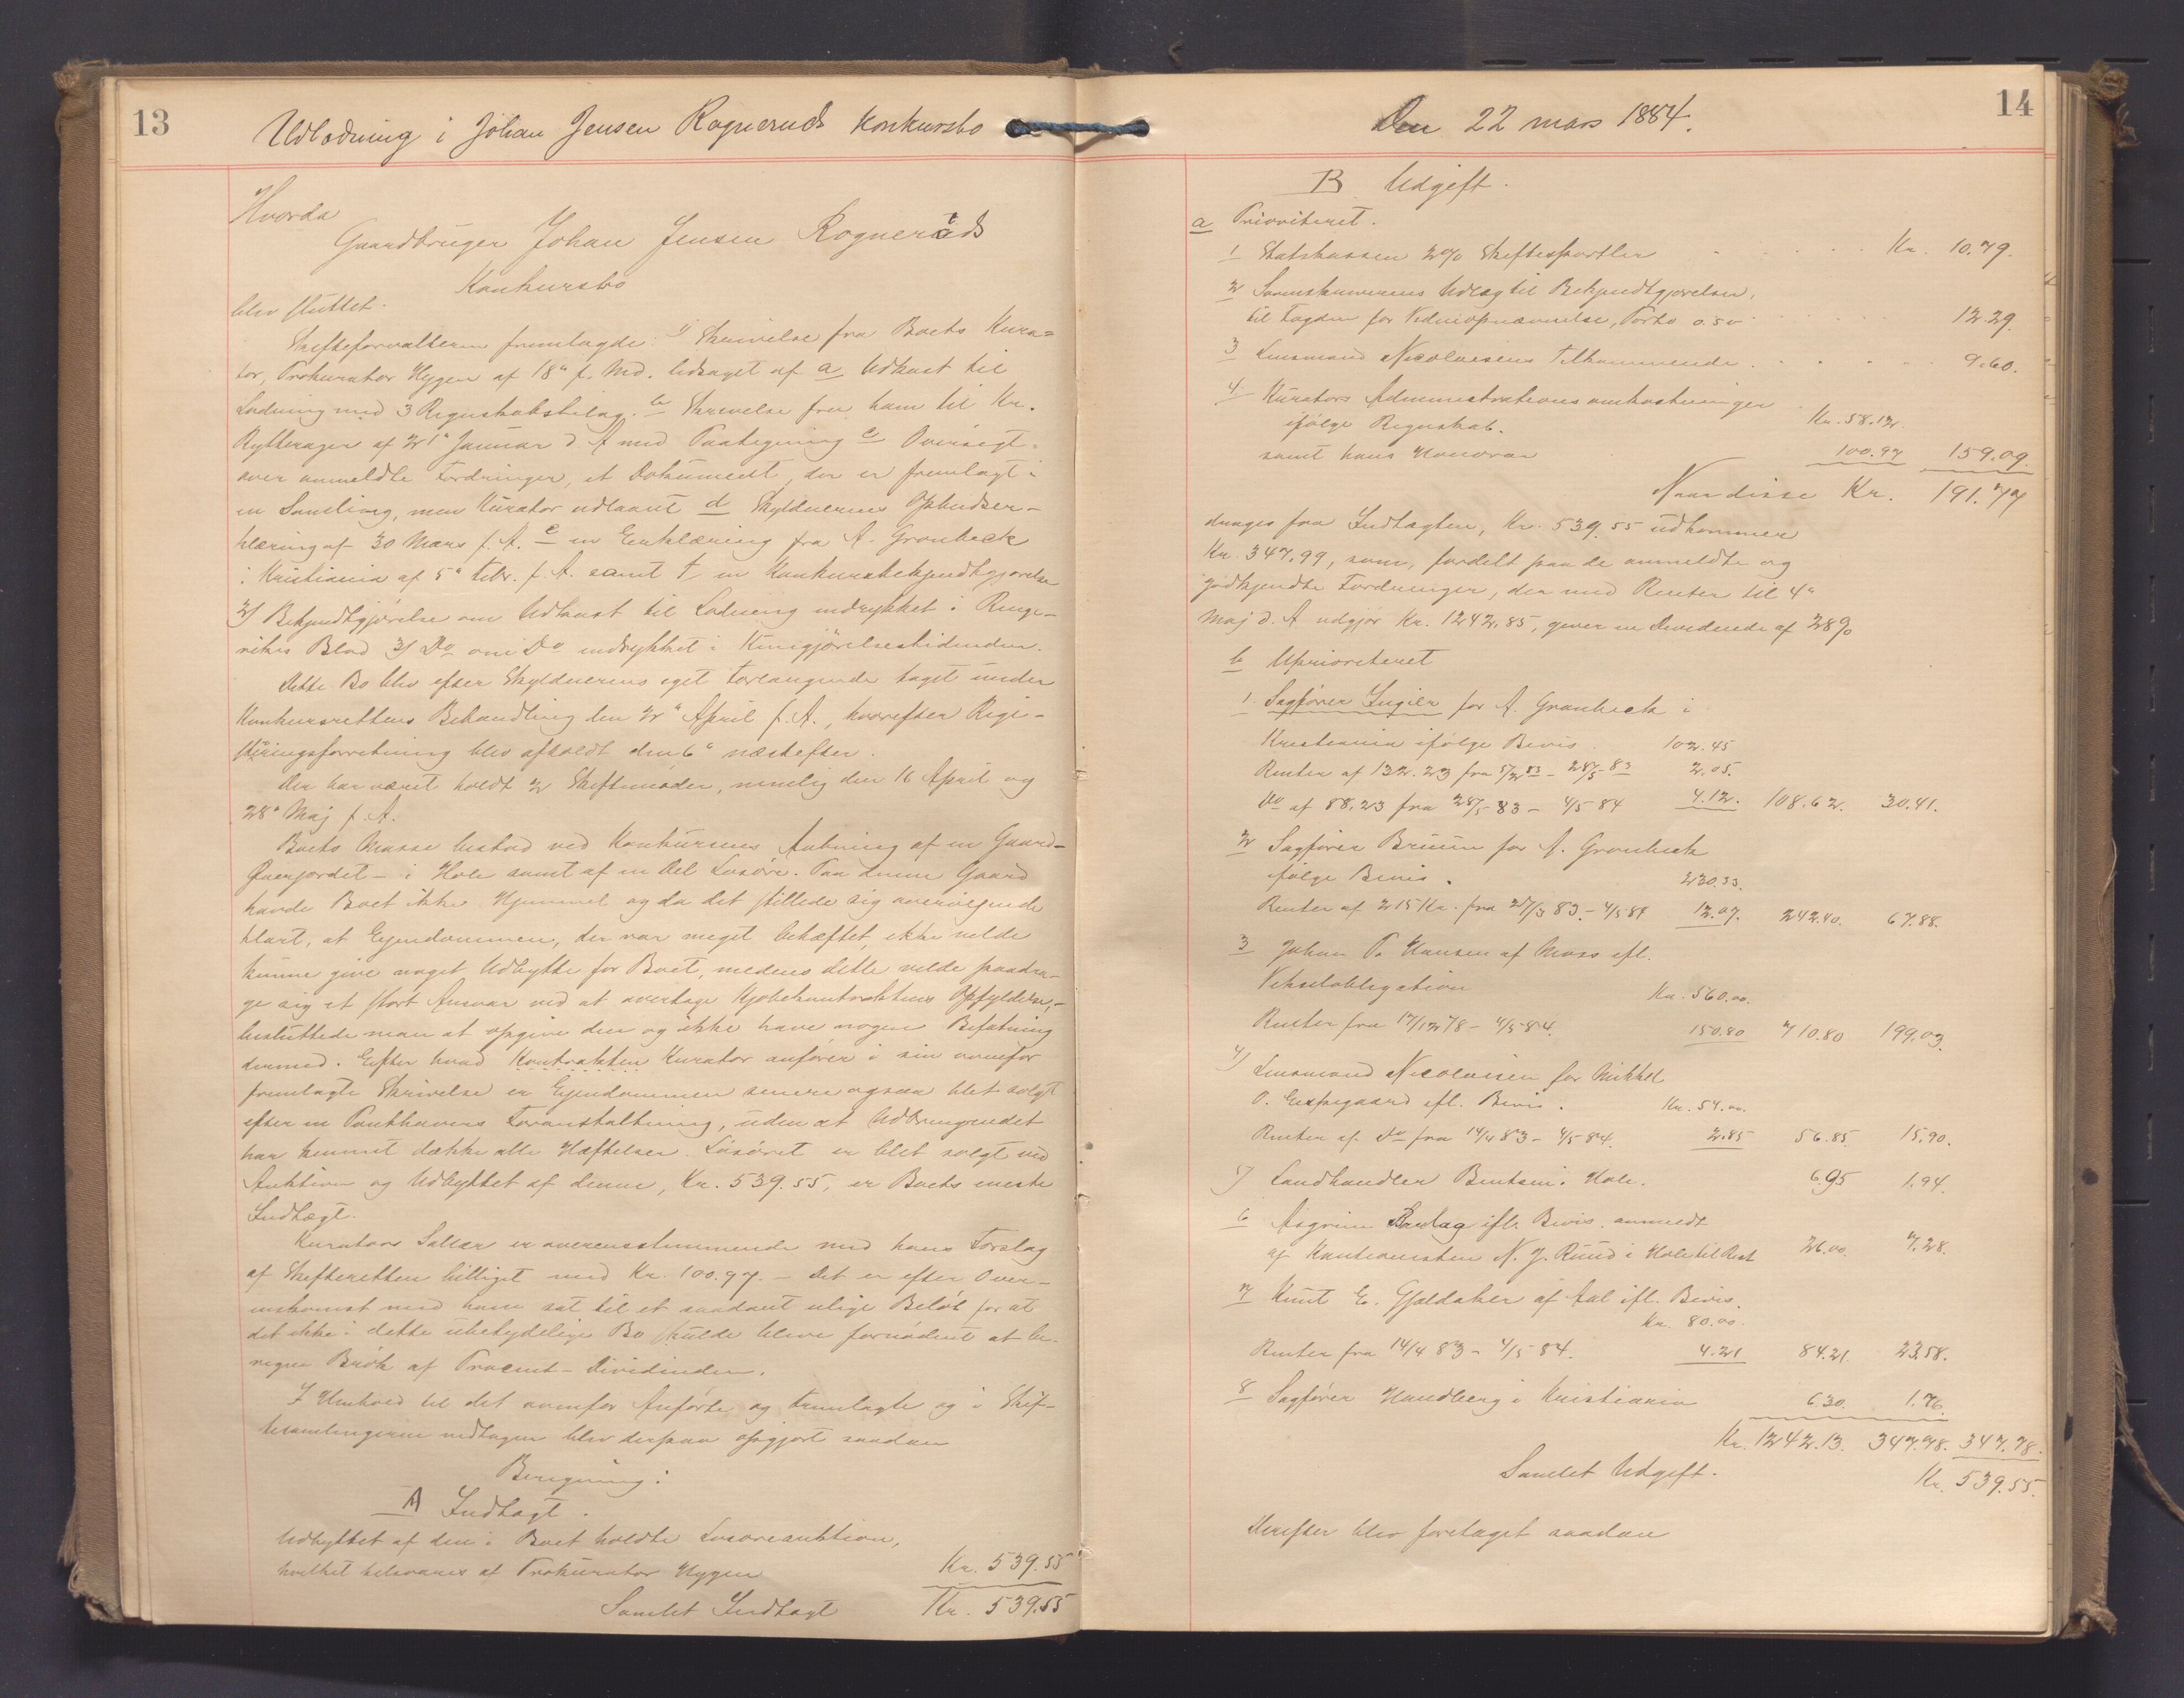 13
Udlodning i Johan Jensen Rogneruds Konkursbo
Hvorda
Gaardbruger Johan Jensen Rogneruds
Konkursbo
blev sluttet.
Skifteforvalteren fremlagde: 1) Skrivelse fra Boets Kura-
tor, Prokurator Hygen af 18de f. Md. ledsaget af a Udkast til
Lodning med 3 Regnskabsbilag. b Skrivelse fra ham til Kr.
Rytterager af 21de Januar d. A med Paategning c Oversigt
over anmeldte Fordringer, et Dokument, der er fremlagt i
en Samling, men Kurator udlaant d Skyldnerens Opbudser-
klæring af 30 Mars f. A. e en Erklæring fra A. Grønbeck
i Kristiania af 5te Febr. f. A. samt f en Konkursbekjendtgjørelse
2) Bekjendtgjørelse om Udkast til Lodning indrykket i Ringe-
rikes Blad 3) Do om Do indrykket i Kundgjørelsestidenden.
Dette Bo blev efter Skyldnerens eget Forlangende taget under
Konkursrettens Behandling den 2de April f. A., hvorefter Regi-
streringsforretning blev afholdt den 6te næstefter.
Der har været holdt 2 Skiftemøder, nemlig den 16 April og
28de Maj f. A.
Boets Masse bestod ved Konkursens Aabning af en Gaard –
– i Hole samt af en Del Løsøre. Paa denne Gaard
havde Boet ikke Hjemmel og da det stillede sig overveiende
klart, at Eiendommen, der var meget behæftet, ikke vilde
kunne give noget Udbytte for Boet, medens dette vilde paadra-
ge sig et stort Ansvar ved at overtage Kjøbekontraktens Opfyldelse, –
besluttede man at opgive den og ikke have nogen Befatning
dermed. Efter hvad Kontrakten Kurator anfører i sin ovenfor
fremlagte Skrivelse er Eiendommen senere ogsaa blet solgt
efter en Panthavers Foranstaltning, uden at Udbringendet
har kunnet dække alle Hæftelser. Løsøret er blet solgt ved
Auktion og Udbyttet af denne, Kr. 539.55, er Boets eneste
Indtægt.
Kurators Salær er overensstemmende med hans Forslag
af Skifteretten billiget med Kr. 100.97. – Det er efter Over-
enskomst med ham sat til et saadant ulige Beløb for at
det ikke i dette ubetydelige Bo skulde blive fornødent at be-
regne Brøk af Procent-Dividenden.
I Henhold til det ovenfor Anførte og Fremlagte og i Skif-
tesamlingerne vedtagne blev derpaa opgjort saadan
Beregning:
A Indtægt.
Udbyttet af den i Boet holdte Løsøreauktion,
hvilket tilsvares af Prokurator Hygen Kr. 539.55
Samlet Indtægt Kr. 539.55
14
Den 22 mars 1884.
B Udgift.
a Prioriteret.
1 Statskassen 2% Skiftesportler Kr. 10.79.
2 Sorenskriverens Udlæg til Bekjendtgjørelser,
til Fogden for Vidneopnævnelse, Porto 0.50 12.29.
3 Lensmand Nicolaisens Tilkommende 9.60.
4 Kurators Administrationsomkostninger
ifølge Regnskab. Kr. 58.12.
samt hans Honorar 100.97 159.09.
Naar disse Kr. 191.77
drages fra Indtægten, Kr. 539.55 udkommer
Kr. 347.99, som, fordelt paa de anmeldte og
godkjendte Fordringer, der med Renter til 4de
Maj d. A udgjør Kr. 1242.85, giver en Dividende af 28%
b Uprioriteret
1. Sagfører Ingier for A. Grønbeck i
Kristiania ifølge Bevis. 102.45
Renter af 132.23 fra 5/2 83 – 28/5 83 2.05.
Do af 88.23 fra 28/5 83 – 4/5 84 4.12. 108.62. 30.41.
2 Sagfører Bruun for A. Grønbeck
ifølge Bevis. 230.33.
Renter af 215 Kr. fra 27/3 83. – 4/5 84 12.07. 242.40. 67.88.
3 Johan P. Hansen af Moss ifl.
Vekselobligation Kr. 560.00.
Renter fra 17/12 78 – 4/5 84. 150.80 710.80 199.03.
4) Lensmand Nicolaisen for Mikkel
O. ifl. Bevis. Kr. 54.00.
Renter af Do fra 14/4 83 – 4/5 84. 2.85 56.85. 15.90.
5) Landhandler Bentsen i Hole. 6.95 1.94.
6 Asgrim ifl. Bevis. anmeldt
af Kautionisten N. J. Ruud i Hole til Rest 26.00. 7.28.
7 Knut E. Gjeldaker af Aal ifl. Bevis.
Kr. 80.00.
Renter fra 14/4 83 – 4/5 84. 4.21 84.21. 23.58.
8 Sagfører Hundberg i Kristiania 6.30. 1.76.
Kr. 1242.13. 347.78. 347.78.
Samlet Udgift. Kr. 539.55.
Derefter blev foretaget saadan